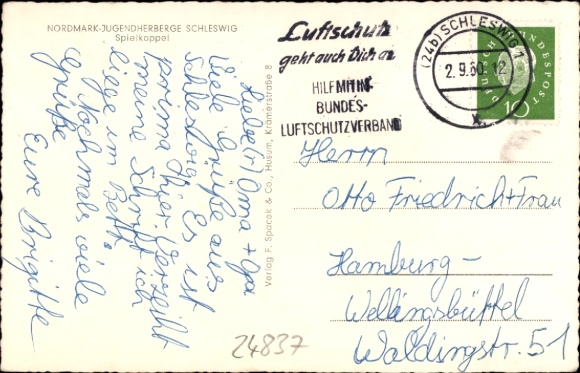 NORDMARK-JUGENDHERBERGE SCHLESWIG
Spielkoppel
Liebe Oma + Opa
Viele Grüße aus
Schleswig. Es ist
prima hier. Verzeiht
meine Schrift ich
liege im Bett.
Nochmals viele
Grüße
Eure Brigitte
Verlag F. Spacek & Co., Husum, Krämerstraße 8
Luftschutz
geht auch Dich an
HILF MIT IM
BUNDES-
LUFTSCHUTZVERBAND
(24b) SCHLESWIG 1
2.9.60. 12
x
BUNDESPOST
10
Herrn
Otto Friedrich + Frau
Hamburg-
Wellingsbüttel
Waldingstr. 51
24837